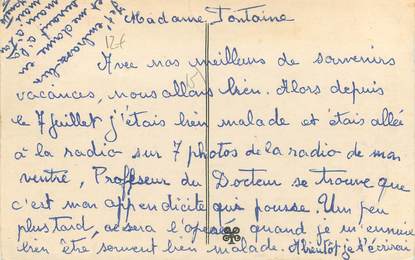 Madame Fontaine
Avec nos meilleurs de souvenirs
vacances, nous allons bien. Alors depuis
le 7 juillet j'étais bien malade et étais allée
à la radio sur 7 photos de la radio de mon
ventre, Professeur du Docteur se trouve que
c'est mon appendicite qui pousse. Un peu
plus tard, ce sera l'opérée quand je m'ennuie
bien être souvent bien malade. A bientôt je t'écrirai
Je t'embrasse